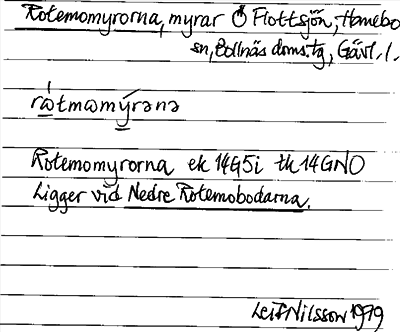 Rotemomyrorna, myrar Ö Flottsjön, Hanebo
sn, Bollnäs doms.tg, Gävl. l.
rωtmωmýrənə
Rotemomyrorna ek 14G5i tk 14GNO
Ligger vid Nedre Rotemobodarna.
Leif Nilsson 1979